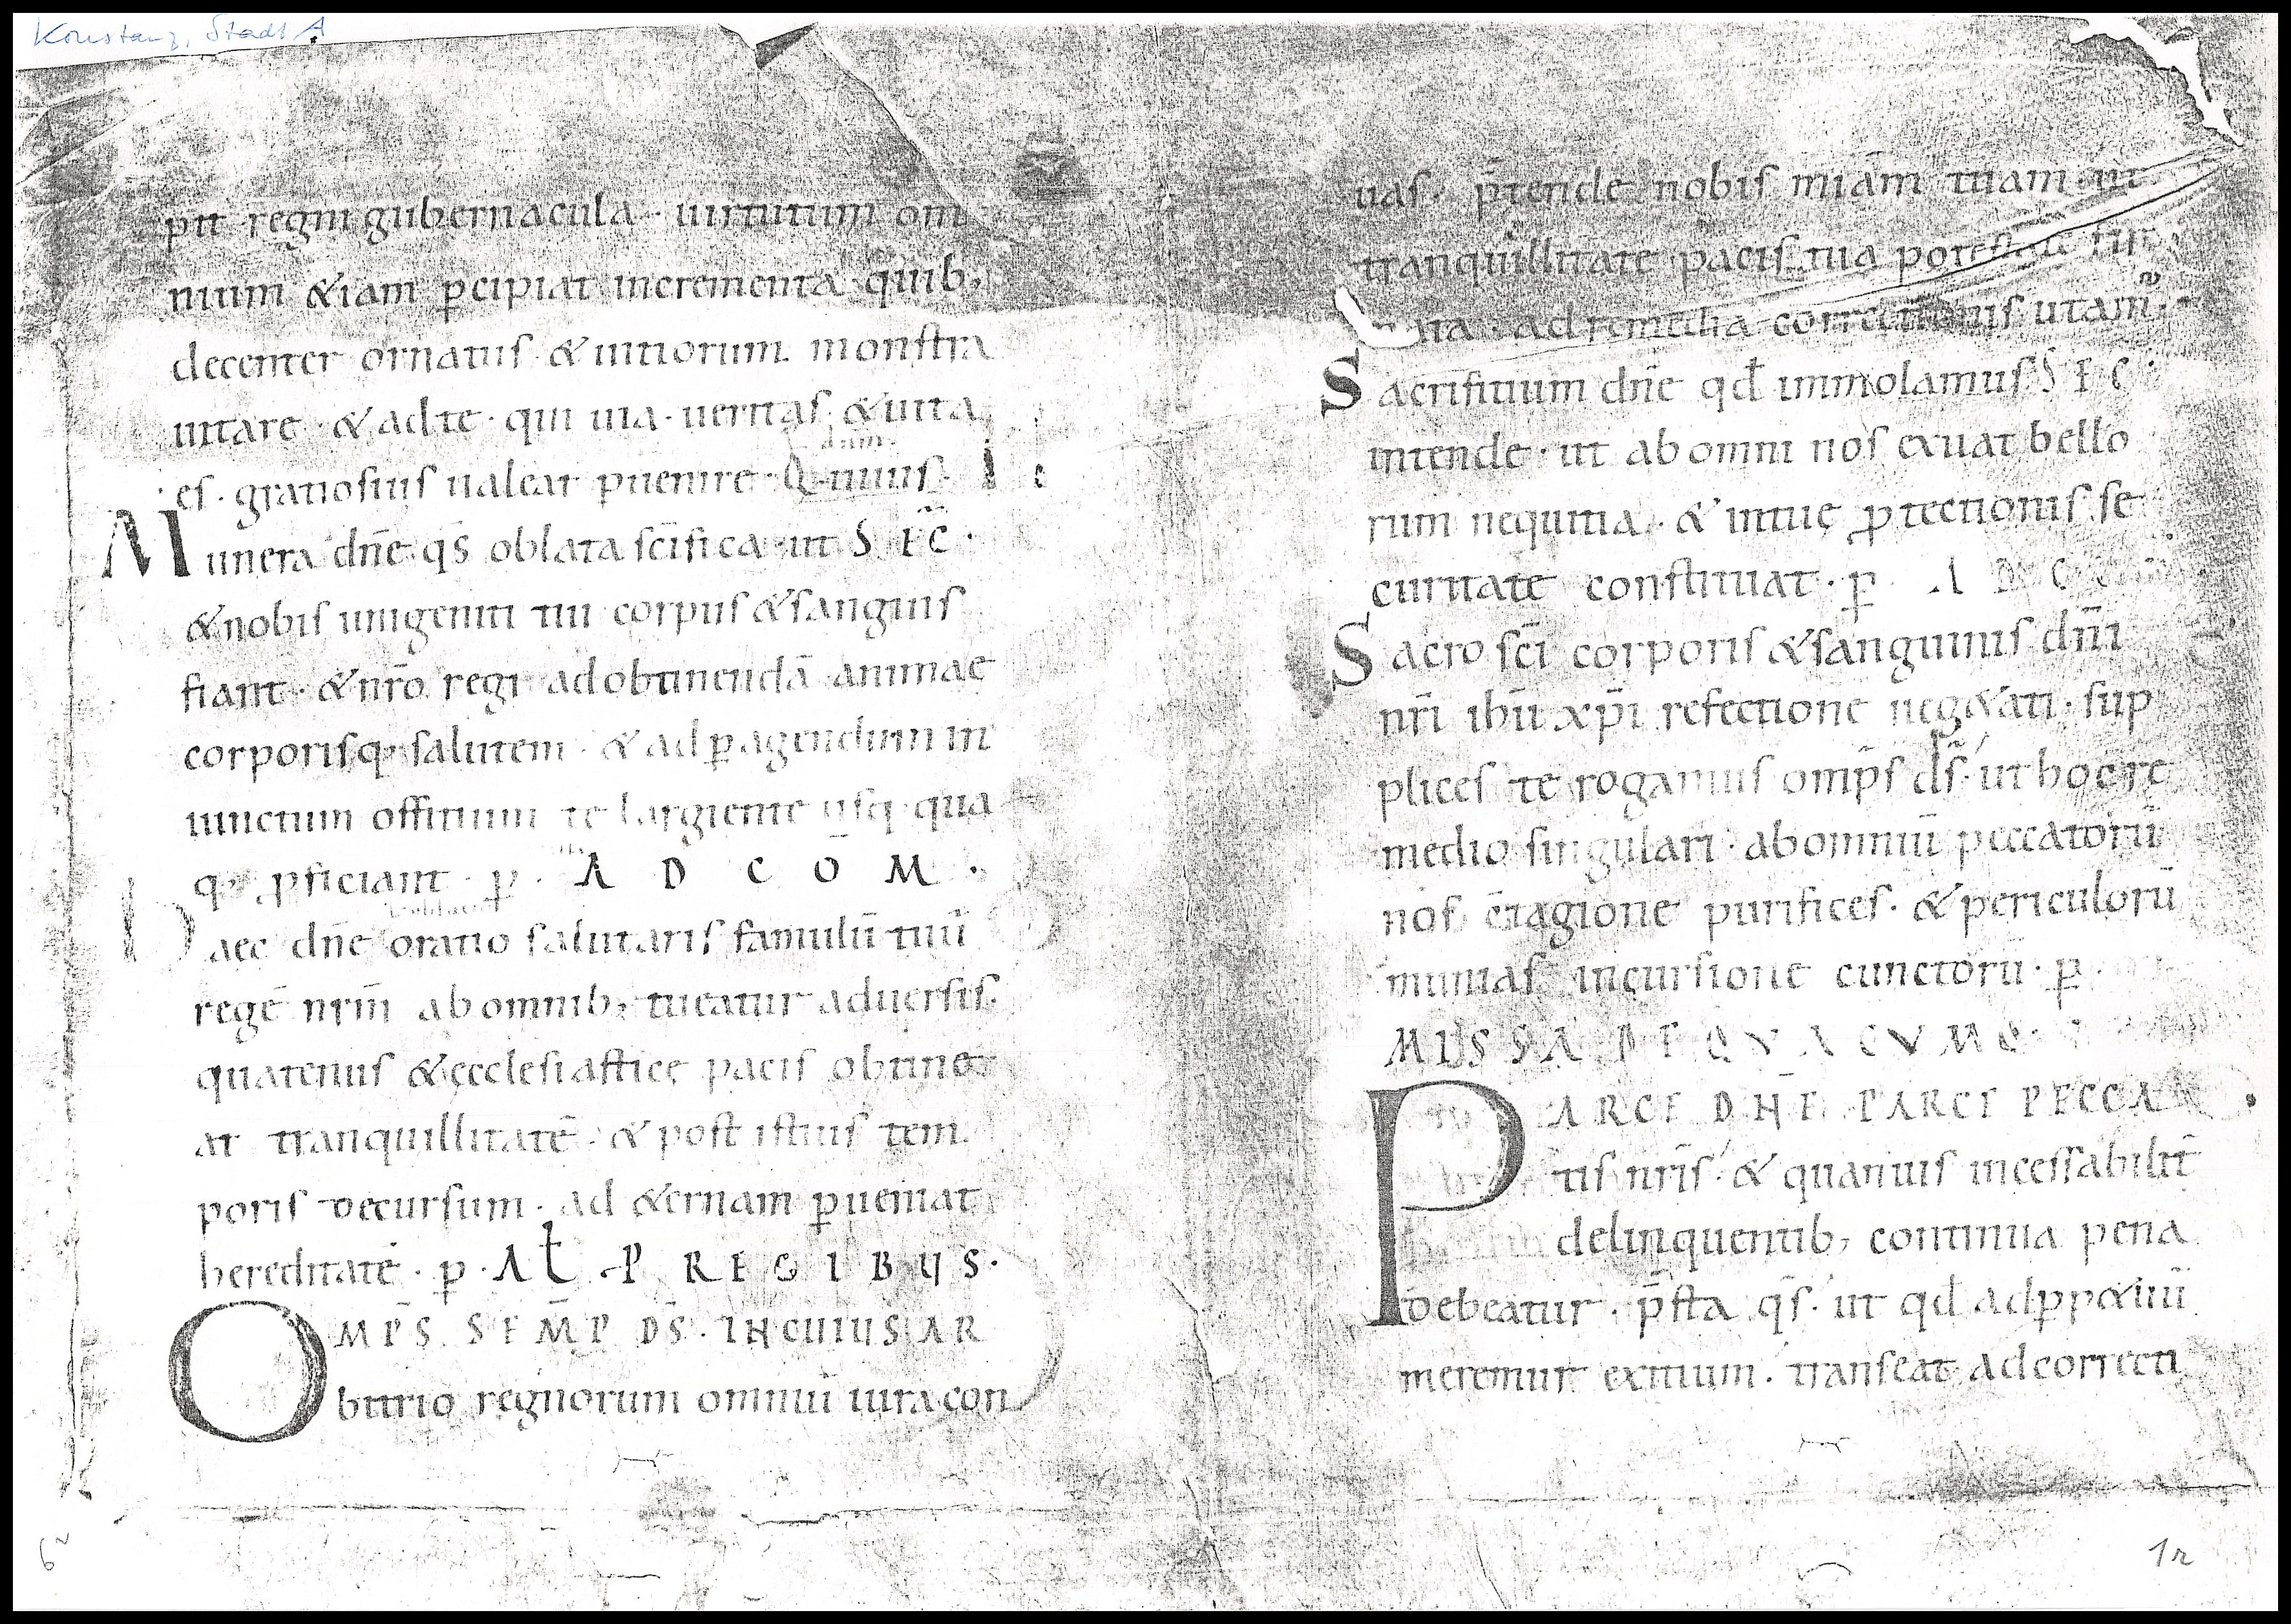 Konstanz, Stadt A
pit regni gubernacula · uirtutum om
nium &iam p̄cipiat incrementa · quib;
decenter ornatus · & uitiorum monstra
uitare · & ad te · qui uia · ueritas · & uita
es · gratiosius ualeat p̄uenire · Q
Munera dn̄e qs̄ oblata sc̄ifica · ut S E C̄ ·
&nobis unigeniti tui corpus &sanguis
fiant · &nr̄o regi adobtinendā animae
corporisq; salutem · & ad p̄agendum in
iunctum offitium te largiente usq; qua
q; p̄ficiant · p̄ · A D C O M ·
Haec dn̄e oratio salutaris famulū tuū
regē nrm̄ ab omnib; tueatur aduersis ·
quatenus & ecclesiasticę pacis obtine
at tranquillitatē · & post istius tem
poris decursum · ad &ernam p̄ueniat
hereditatē · p̄ · Al̄ · P REGIBUS ·
OMP̄S SEM̄P DS̄ · IN CUIUS AR
bitrio regnorum omniū iura con
uas · p̄tende nobis miam̄ tuam · ut
tranquillitate pacis tua potestate fir
ata · ad remedia correctionis utam̄ ·
Sacrifitium dn̄e qd̄ immolamus S E C ·
intende · ut ab omni nos exuat bello
rum nequitia · & in tuę p̄tectionis se
curitate constituat · p̄ A D C
Sacro sc̄i corporis &sanguinis dn̄i
nr̄i ihū xp̄i refectione neg&ati · sup
plices te rogamus omp̄s ds̄ · ut hoc re
medio singulari · ab omniū peccatorū
nos c̄tagione purifices · & periculorū
munias incursione cunctorū · p̄
MISSA DE QVACVMQ ·
PARCE DN̄E PARCE PECCA
tis nr̄is · & quanuis incessabilit̄
delinquentib; continua pena
debeatur · p̄sta qs̄ · ut qd̄ ad p̄p&uū
meremur exitium · transeat ad correcti
6v
1r